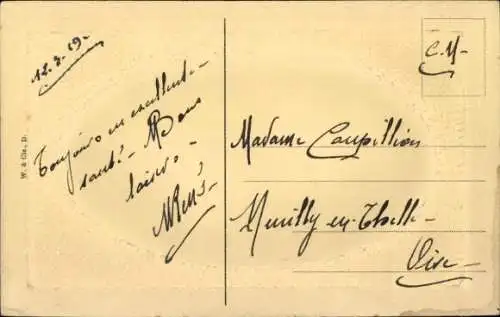 12.3.19-
Toujours en excellente
santé - Bons
baisers -
W. & Cie., D.
C.M-
Madame Caupillion
Neuilly-en-Thelle-
Oise-